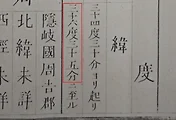 度
緯
三十四度三十分ヨリ起リ
三十六度三十五分ニ至ル
隱岐國周吉郡
周北緯未詳
西經未詳